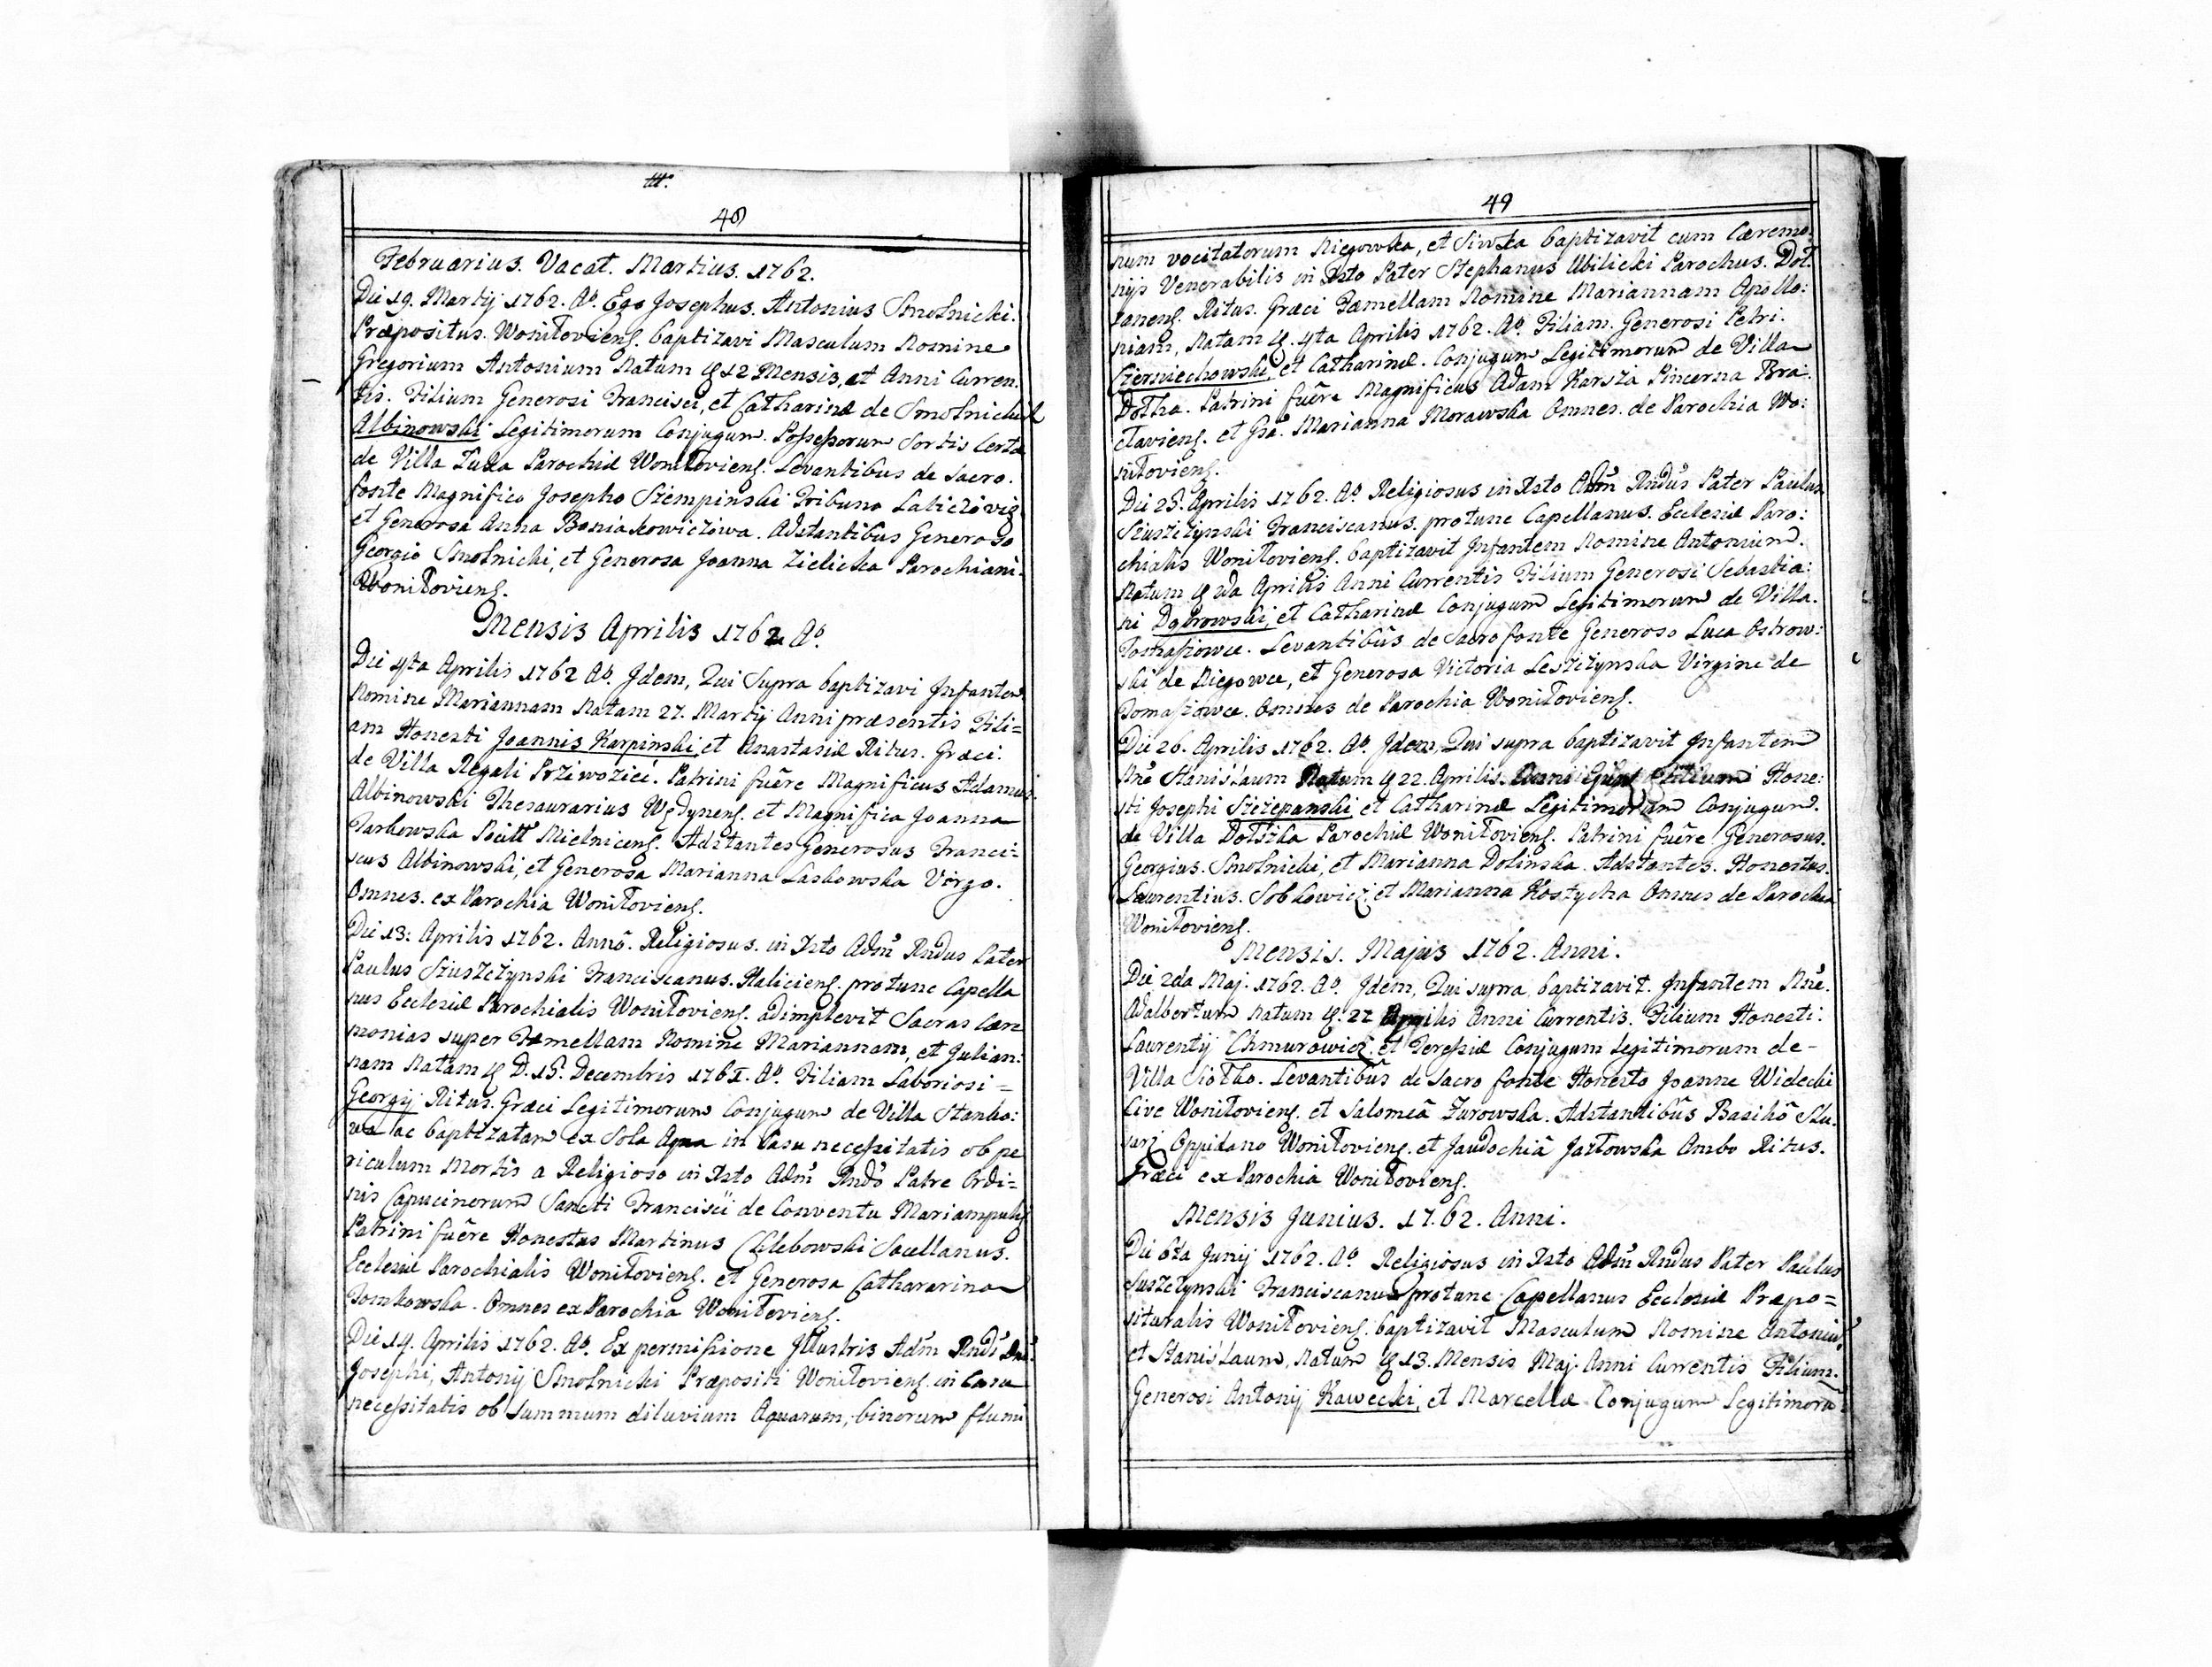 48
Februarius. Vacat. Martius. 1762.
Die 19. Martij 1762. Ao. Ego Josephus. Antonius Smolnicki.
Præpositus. Woniłoviens. baptizavi Masculum Nomine
Gregorium Antonium Natum 12 Mensis, et Anni Curren.
tis. Filium Generosi Francisci, et Catharinæ de Smolnickich
Albinowski Legitimorum Conjugum. Possessorum Sortis Certæ
de Villa Tuża Parochiæ Woniłoviens. Levantibus de Sacro.
fonte Magnifico Josepho Szempinski Tribuno
et Generosa Anna Boniakowiczowa. Adstantibus Generoso
Georgio Smolnicki, et Generosa Joanna Zielicka Parochiani.
Woniłoviens.
Mensis Aprilis 1762 Ao.
Die 4ta Aprilis 1762 Ao. Jdem, Qui Supra baptizavi Jnfantem
Nomine Mariannam Natam 27. Martij Anni præsentis Fili=
am Honesti Joannis Karpinski, et Anastasiæ Ritus. Græci.
de Villa Regali Patrini fuêre Magnificus Adamus.
Albinowski Thesaurarius et Magnifica Joanna
Tarkowska Mielnicens. Adstantes Generosus Franci=
scus Albinowski, et Generosa Marianna Laskowska Virgo.
Omnes. ex Parochia Woniłoviens.
Die 13: Aprilis 1762. Annô. Religiosus. in Xsto Adm Rndus Pater
Paulus Sziuszczynski Franciscanus. Haliciens. protunc Capella
nus Ecclesiæ Parochialis Woniłoviens. adimplevit Sacras Cære
monias super Fæmellam Nomine Mariannam, et Julian:
nam Natam D. 15. Decembris 1761. Ao. Filiam Laboriosi =
Georgij Ritus. Græci Legitimorum Conjugum de Villa Stanko:
wa ac baptizatam ex Sola Aqua in Casu necessitatis ob pe
riculum Mortis a Religioso in Xsto Adm Rndo Patre Ordi=
nis Capucinorum Sancti Francisci de Conventu Mariampoliens
Patrini fuêre Honestus Martinus Chlebowski Sacellanus.
Ecclesiæ Parochialis Woniłoviens. et Generosa Cathararina
Tomkowska. Omnes ex Parochia Woniłoviens.
Die 14. Aprilis 1762. Ao. Ex permissione Jllustris Adm Rndi Dni
Josephi, Antonij Smolnicki Præpositi Woniłoviens. in Casu
necessitatis ob summum diluvium Aquarum, binorum flumi
49
num vocitatorum Niegowka, et Siwka baptizavit cum Cæremo:
nijs Venerabilis in Xsto Pater Stephanus Ubilicki Parochus. Doł
haneñs. Ritus. Græci Fæmellam Nomine Mariannam Apollo:
niam, Natam 4ta Aprilis 1762. Ao. Filiam. Generosi Petri.
Czerniechowski, et Catharinæ. Conjugum Legitimorum de Villa
Dołha. Patrini fuêre Magnificus Adam Karsza Pincerna Bra.
claviens. et Gsa. Marianna Morawska Omnes. de Parochia Wo:
niłoviens.
Die 25. Aprilis 1762. Ao. Religiosus in Xsto Adm Rndus Pater Paulus
Sziuszczynski Franciscanus. protunc Capellanus. Ecclesiæ Paro:
chialis Woniłoviens. baptizavit Jnfantem Nomine Antonium.
Natum Aprilis Anni Currentis Filium Generosi Sebastia:
ni Dąbrowski, et Catharinæ Conjugum Legitimorum de Villa.
Tomaszowce. Levantibûs de Sacro fonte Generoso Luca Ostrow:
ski de Niegowce, et Generosa Victoria Leszczynska Virgine de
Tomaszowce. Omnes de Parochia Woniłoviens.
Die 26. Aprilis 1762. Ao. Jdem, Qui supra baptizavit Jnfantem
Nne Stanisłaum Natum 22. Aprilis. Anni Filium Hone:
sti Josephi Szczepanski, et Catharinæ Legitimorum Conjugum.
de Villa Dołżka Parochiæ Woniłoviens. Patrini fuêre Generosus.
Georgius. Smolnicki, et Marianna Dolinska. Adstantes. Honestus.
Laurentius. Sobkowicz. et Marianna Kostycha Omnes de Parochia
Woniłoviens.
Mensis. Majus 1762. Anni.
Die 2da Maj. 1762. Ao. Jdem, Qui supra, baptizavit. Jnfantem Nne.
Adalbertum Natum 22 Aprilis Anni Currentis. Filium Honesti.
Laurentij Chmurowicz, et Teressiæ Conjugum Legitimorum de-
Villa Siołko. Levantibûs de Sacro fonte Honesto Joanne Widecki
Cive Woniłoviens. et Salomeâ Zurowska. Adstantibûs Basiliô Slu.
sarz Oppidano Woniłoviens. et Jaudochiâ Jazłowska Ambo Ritus.
Græci ex Parochia Woniłoviens.
Mensis Junius. 1762. Anni.
Die 6ta Junij 1762. Ao Religiosus in Xsto Adm Rndus Pater Paulus
Suszczynski Franciscanus protunc Capellanus Ecclesiæ Præpo=
situralis Woniłoviens. baptizavit Masculum Nomine Antonium
et Stanisłaum, Natum 13. Mensis Maj. Anni Currentis Filium.
Generosi Antonij Kawecki, et Marcellæ Conjugum Legitimorū